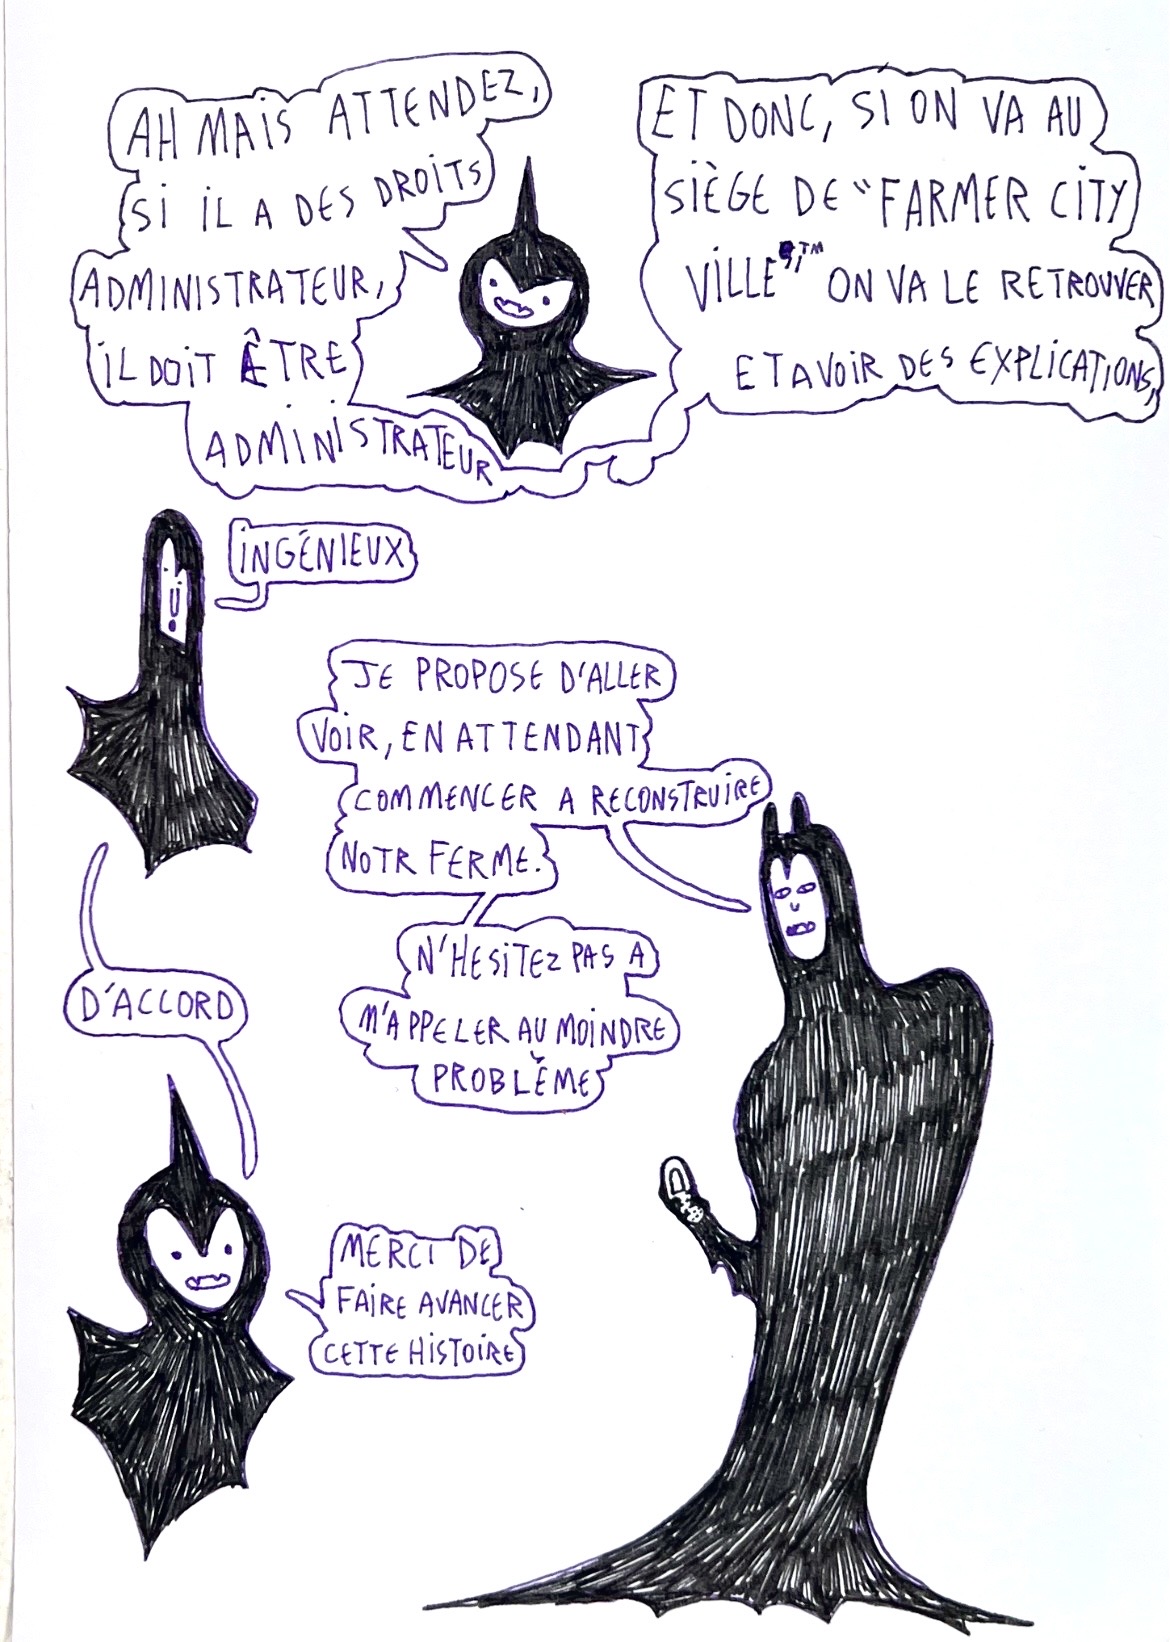 AH MAIS ATTENDEZ,
SI IL A DES DROITS
ADMINISTRATEUR,
IL DOIT ÊTRE
ADMINISTRATEUR
ET DONC, SI ON VA AU
SIÈGE DE "FARMER CITY
VILLE"™ ON VA LE RETROUVER
ET AVOIR DES EXPLICATIONS,
INGÉNIEUX
JE PROPOSE D'ALLER
VOIR, EN ATTENDANT
COMMENCER A RECONSTRUIRE
NOTR FERME.
N'HESITEZ PAS A
M'APPELER AU MOINDRE
PROBLÈME
D'ACCORD
MERCI DE
FAIRE AVANCER
CETTE HISTOIRE